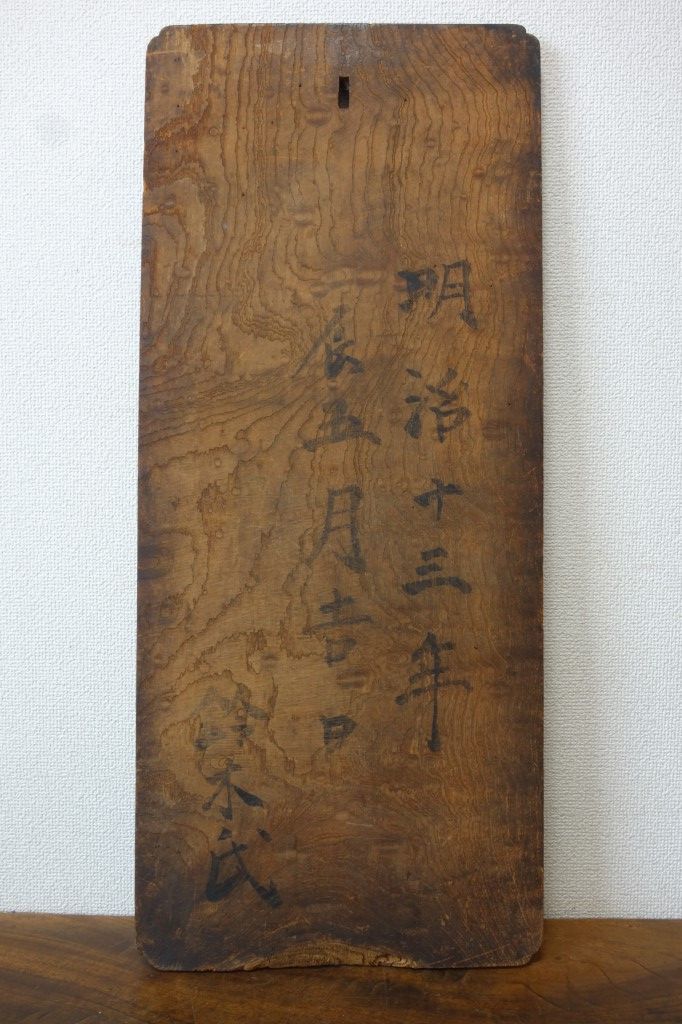 明治十三年
辰五月吉日
鈴木氏